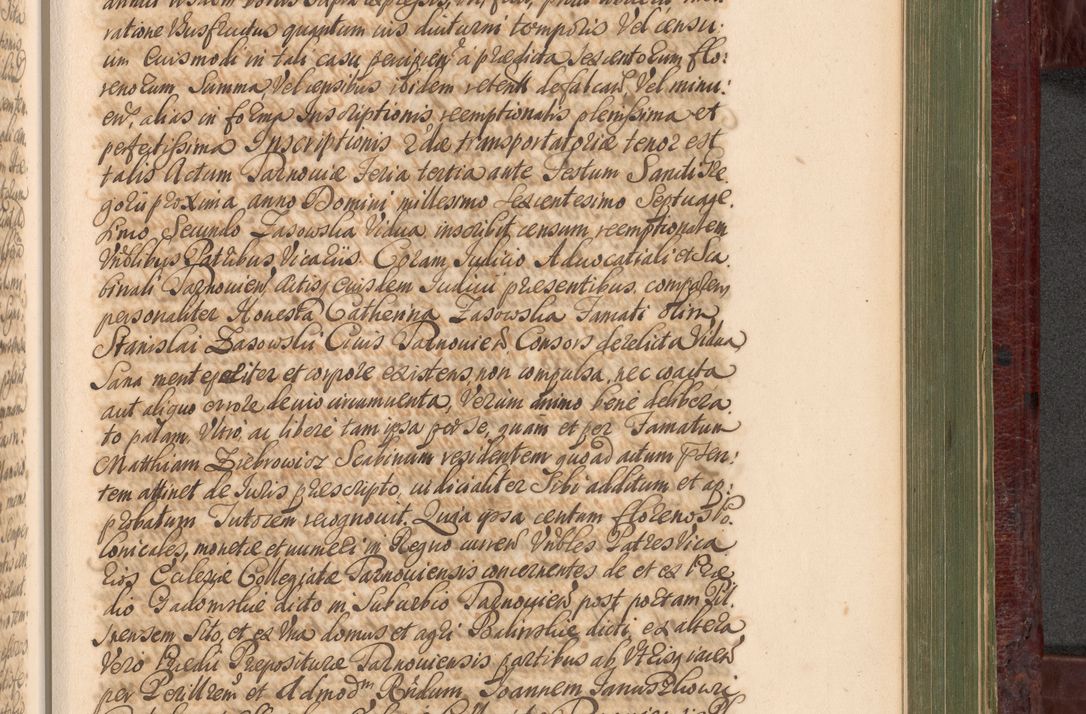 ratione Usufructus quantum ius diuturni temporis vel censu:
um euismodi in tali casu percipien a praedicta sexcentorum flo:
renorum Summa Vel censibus ibidem retent defalcari, Vel minu:
eri, alias in forma Inscriptionis reemptionalis plenissima et
perfectissima Inscriptionis Rdae transportatoriae tenor est
talis Actum Tarnoviae Feria tertia ante Festum Sancti Gre
gorii proxima, anno Domini millesimo Sexcentesimo Septuage.
simo Secundo Zasowska Vidua inscribit censum reemptionalem
Vnrlibus Patribus Vicariis. Coram Judicio Aduocatiali et Sca
binali Tarnouien, Actisq eiusdem Judicii praesentibus, comparens
personaliter Honesta Catherina Zasowska Famati olim
Stanislai Zasowski Ciuis Tarnouien Consors derelicta Vidua,
Sana mente pariter et corpore existens, non compulsa, nec coacta
aut aliquo errore deuio circumuenta, Verum animo bene delibera
to palam, Vltro, ac libere tam ipsa per se, quam et per Famatum
Matthiam Ziebrowicz Scabinum residentem quoad actum praesen:
tem attinet de Juris praescripto, iudicialiter Sibi additum et ap:
probatum Tutorem recognouit. Quia ipsa centum florenos Po.
lonicales, monetae et numeri in Regno curren Vnbles Patres Vica
rios Ecclesiae Collegiatae Tarnouiensis concernentes de et ex Prae
dio Gadomskie dicto in Suburbio Tarnouien post portam Pil
snensem Sito, et ex Vna domus et agri Balinskie dicti, ex altera
Vero Praedii Praepositurae Tarnouiensis partibus ab Vtrisq iacen
per Perillrem et Admodm Rndum Joannem Januszkowi